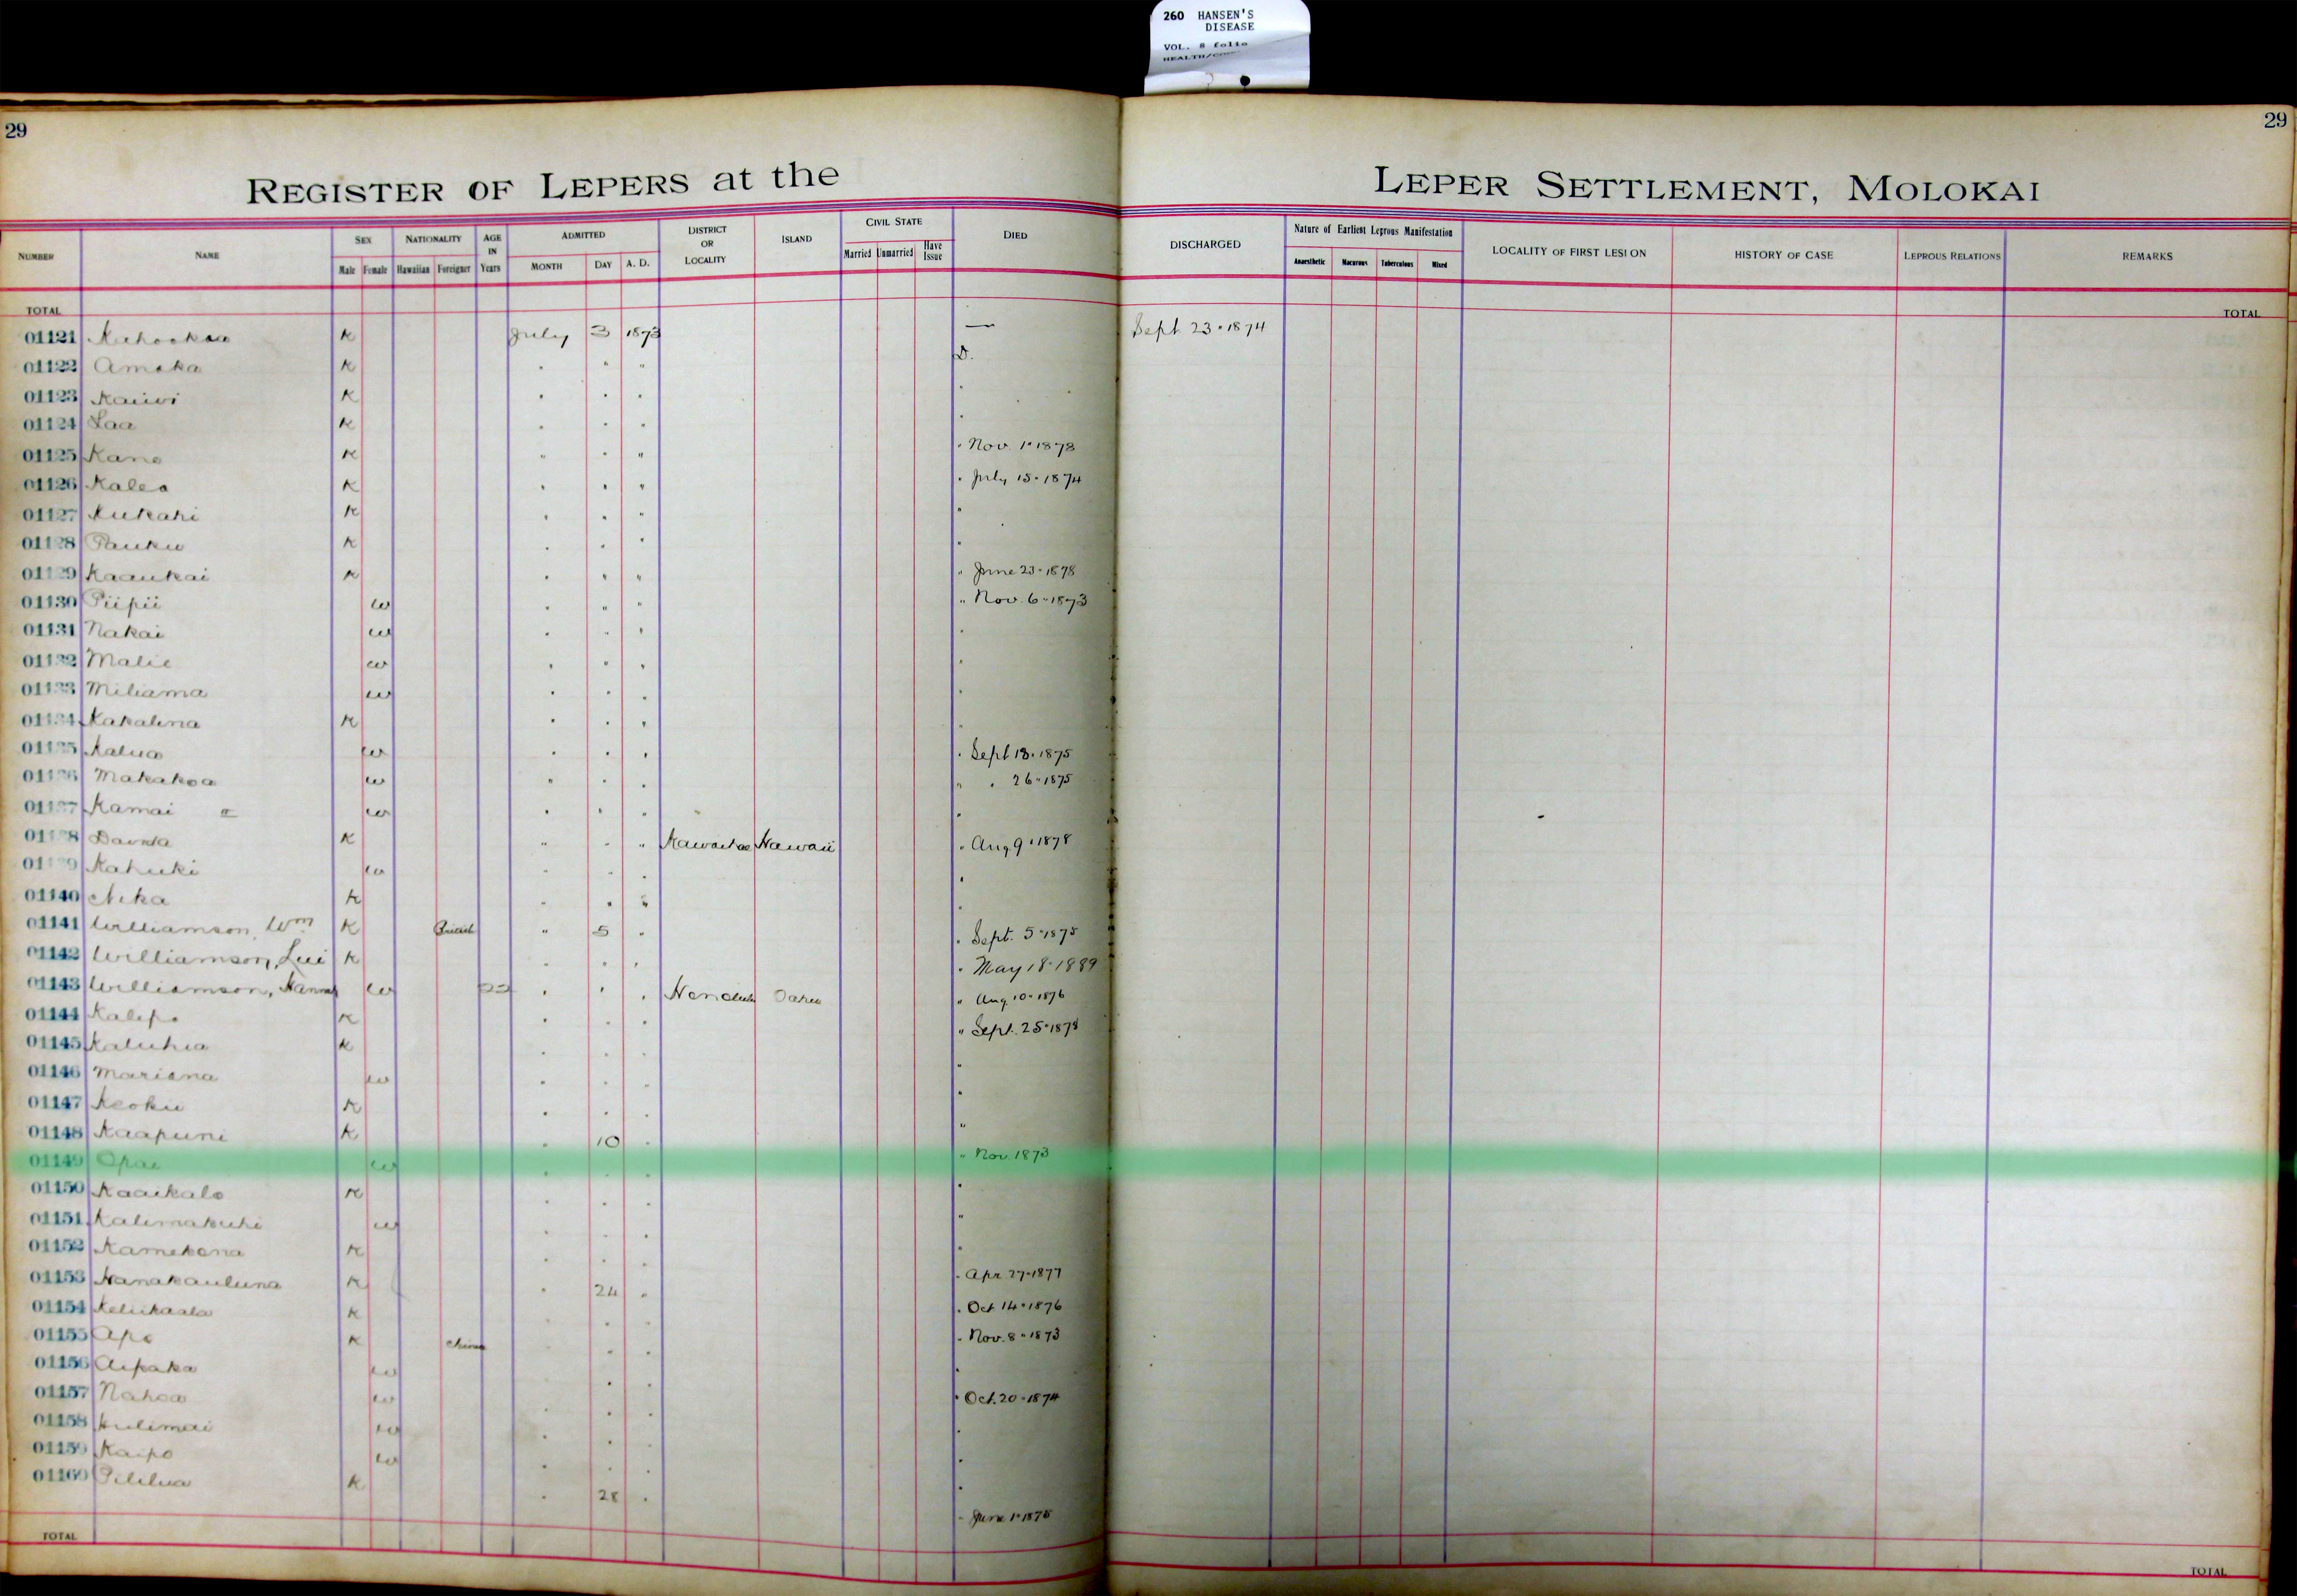 260 HANSEN'S
DISEASE
VOL. 8 folio
29
29
REGISTER OF LEPERS at the
LEPER SETTLEMENT, MOLOKAI
NUMBER NAME SEX NATIONALITY AGE IN Years ADMITTED DISTRICT OR LOCALITY ISLAND CIVIL STATE DIED DISCHARGED Nature of Earliest Leprous Manifestation LOCALITY OF FIRST LESION HISTORY OF CASE LEPROUS RELATIONS REMARKS
Male Female Hawaiian Foreigner MONTH DAY A. D. Married Unmarried Have Issue Anaesthetic Tuberculous Mixed
TOTAL TOTAL
01121 K July 3 1873 — Sept 23 · 1874
01122 Amaka K " " " D.
01123 Kaiwi K " " " "
01124 Laa K " " " "
01125 K " " " " Nov. 1 · 1878
01126 Kalea K " " " " July 15 · 1874
01127 Kukahi K " " " "
01128 Pauku K " " " "
01129 Kaaukai K " " " " June 23 · 1878
01130 Piipii w " " " " Nov. 6 · 1873
01131 Nakai w " " " "
01132 Malie w " " " "
01133 Miliama w " " " "
01134 Kakalina K " " " "
01135 Kalua w " " " " Sept 18 · 1875
01136 Makakoa w " " " " " 26 · 1875
01137 Kamai w " " " "
01138 K " " " Kawaihae Hawaii " Aug 9 · 1878
01139 Kahuki w " " " "
01140 Nika K " " " "
01141 Williamson, Wm K British " 5 " " Sept. 5 · 1875
01142 Williamson, Lui K " " " " May 18 · 1889
01143 Williamson, w " " " Honolulu Oahu " Aug. 10 · 1876
01144 K " " " " Sept. 25 ·
01145 Kaluhia K " " " "
01146 Mariana w " " " "
01147 Keoku K " " " "
01148 Kaapuni K " 10 " "
01149 Opae w " " " " Nov. 1873
01150 Kaaikalo K " " " "
01151 Kalimakuhi w " " " "
01152 Kamekona K " " " "
01153 Nanakauluna K " 24 " " Apr 27 · 1877
01154 Keliikaala K " " " " Oct 14 · 1876
01155 Apo K China " " " " Nov. 8 · 1873
01156 Aipaka w " " " "
01157 Nahoa w " " " " Oct. 20 · 1874
01158 Kulimai w " " " "
01159 Kaipo w " " " "
01160 Pililua K " 28 " " June 1 ·
TOTAL TOTAL